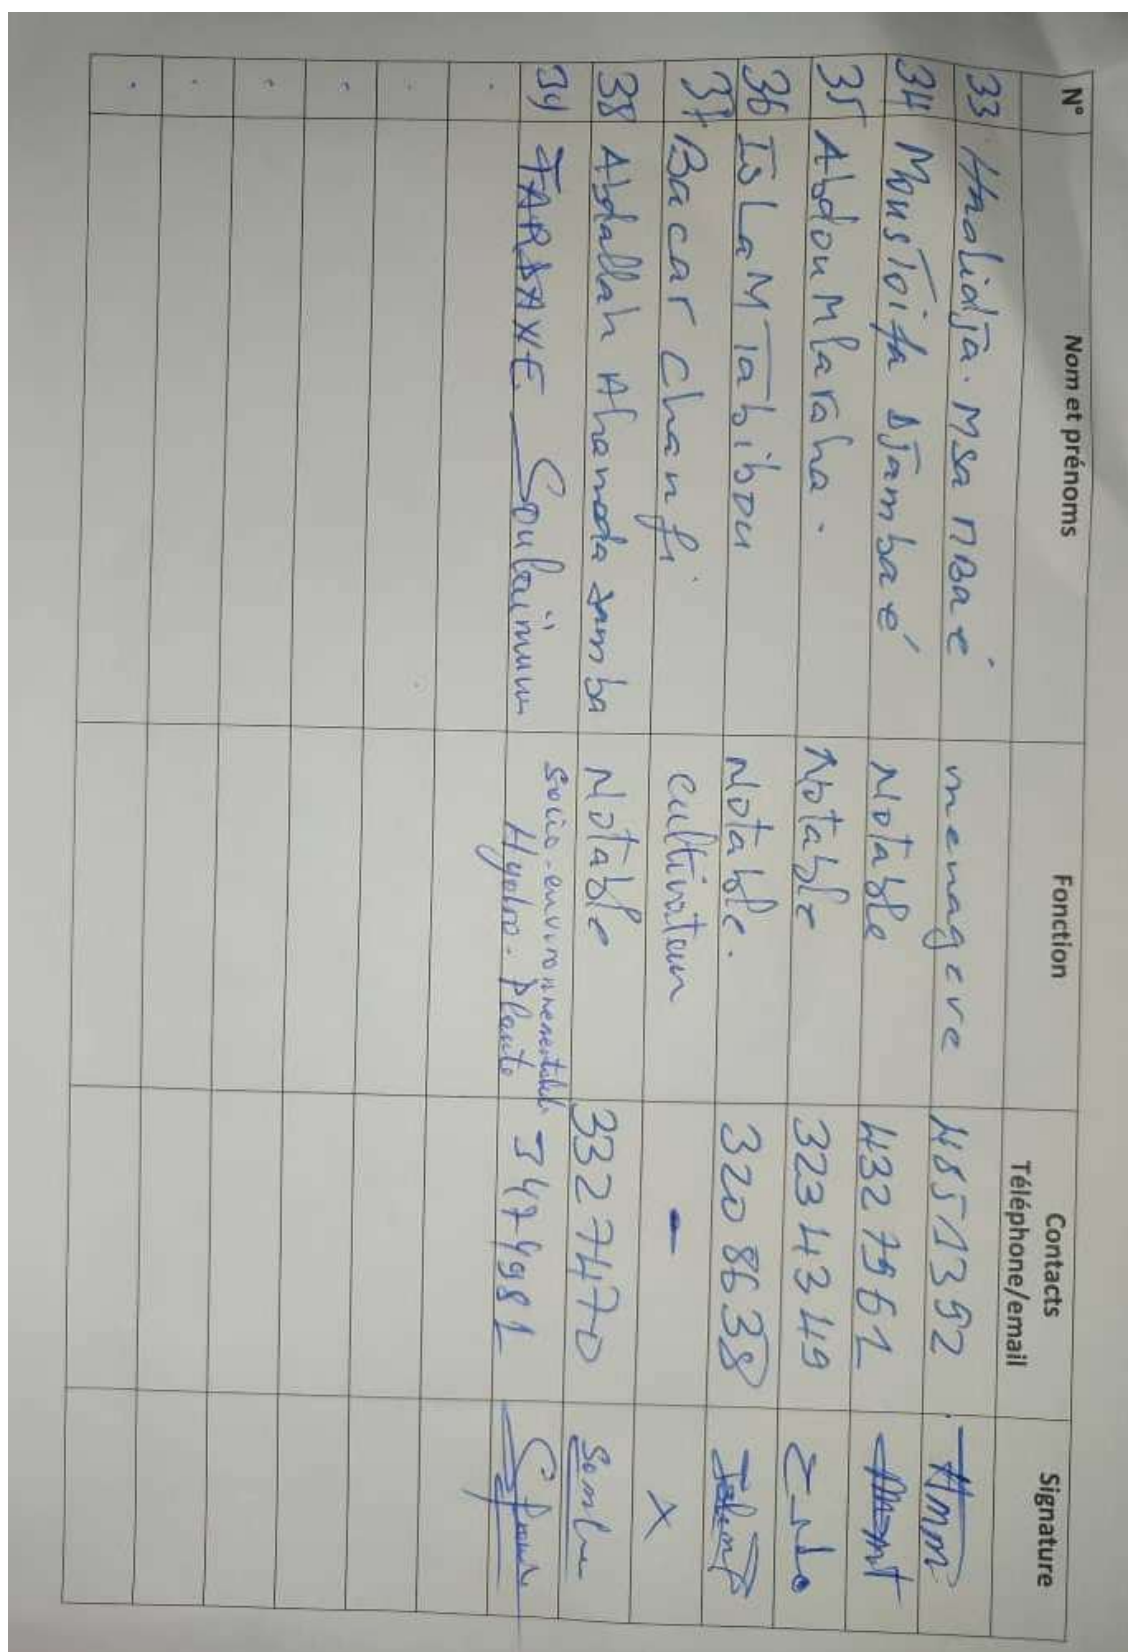 N° Nom et prénoms Fonction Contacts Téléphone/email Signature
33 Hadidja. Msa MBaé menagere 4851392 HMM
34 MousToifa DJambaé Notable 4327561
35 Abdou Mlaraha. Notable 3234349
36 IsLaM Tabibou Notable. 3208638
37 Bacar Chanfi cultivateur - X
38 Abdallah Ahamada Samba Notable 3327470
39 TARDANE Soulaïmana socio-environnemental
Hydro-Plante 3474981